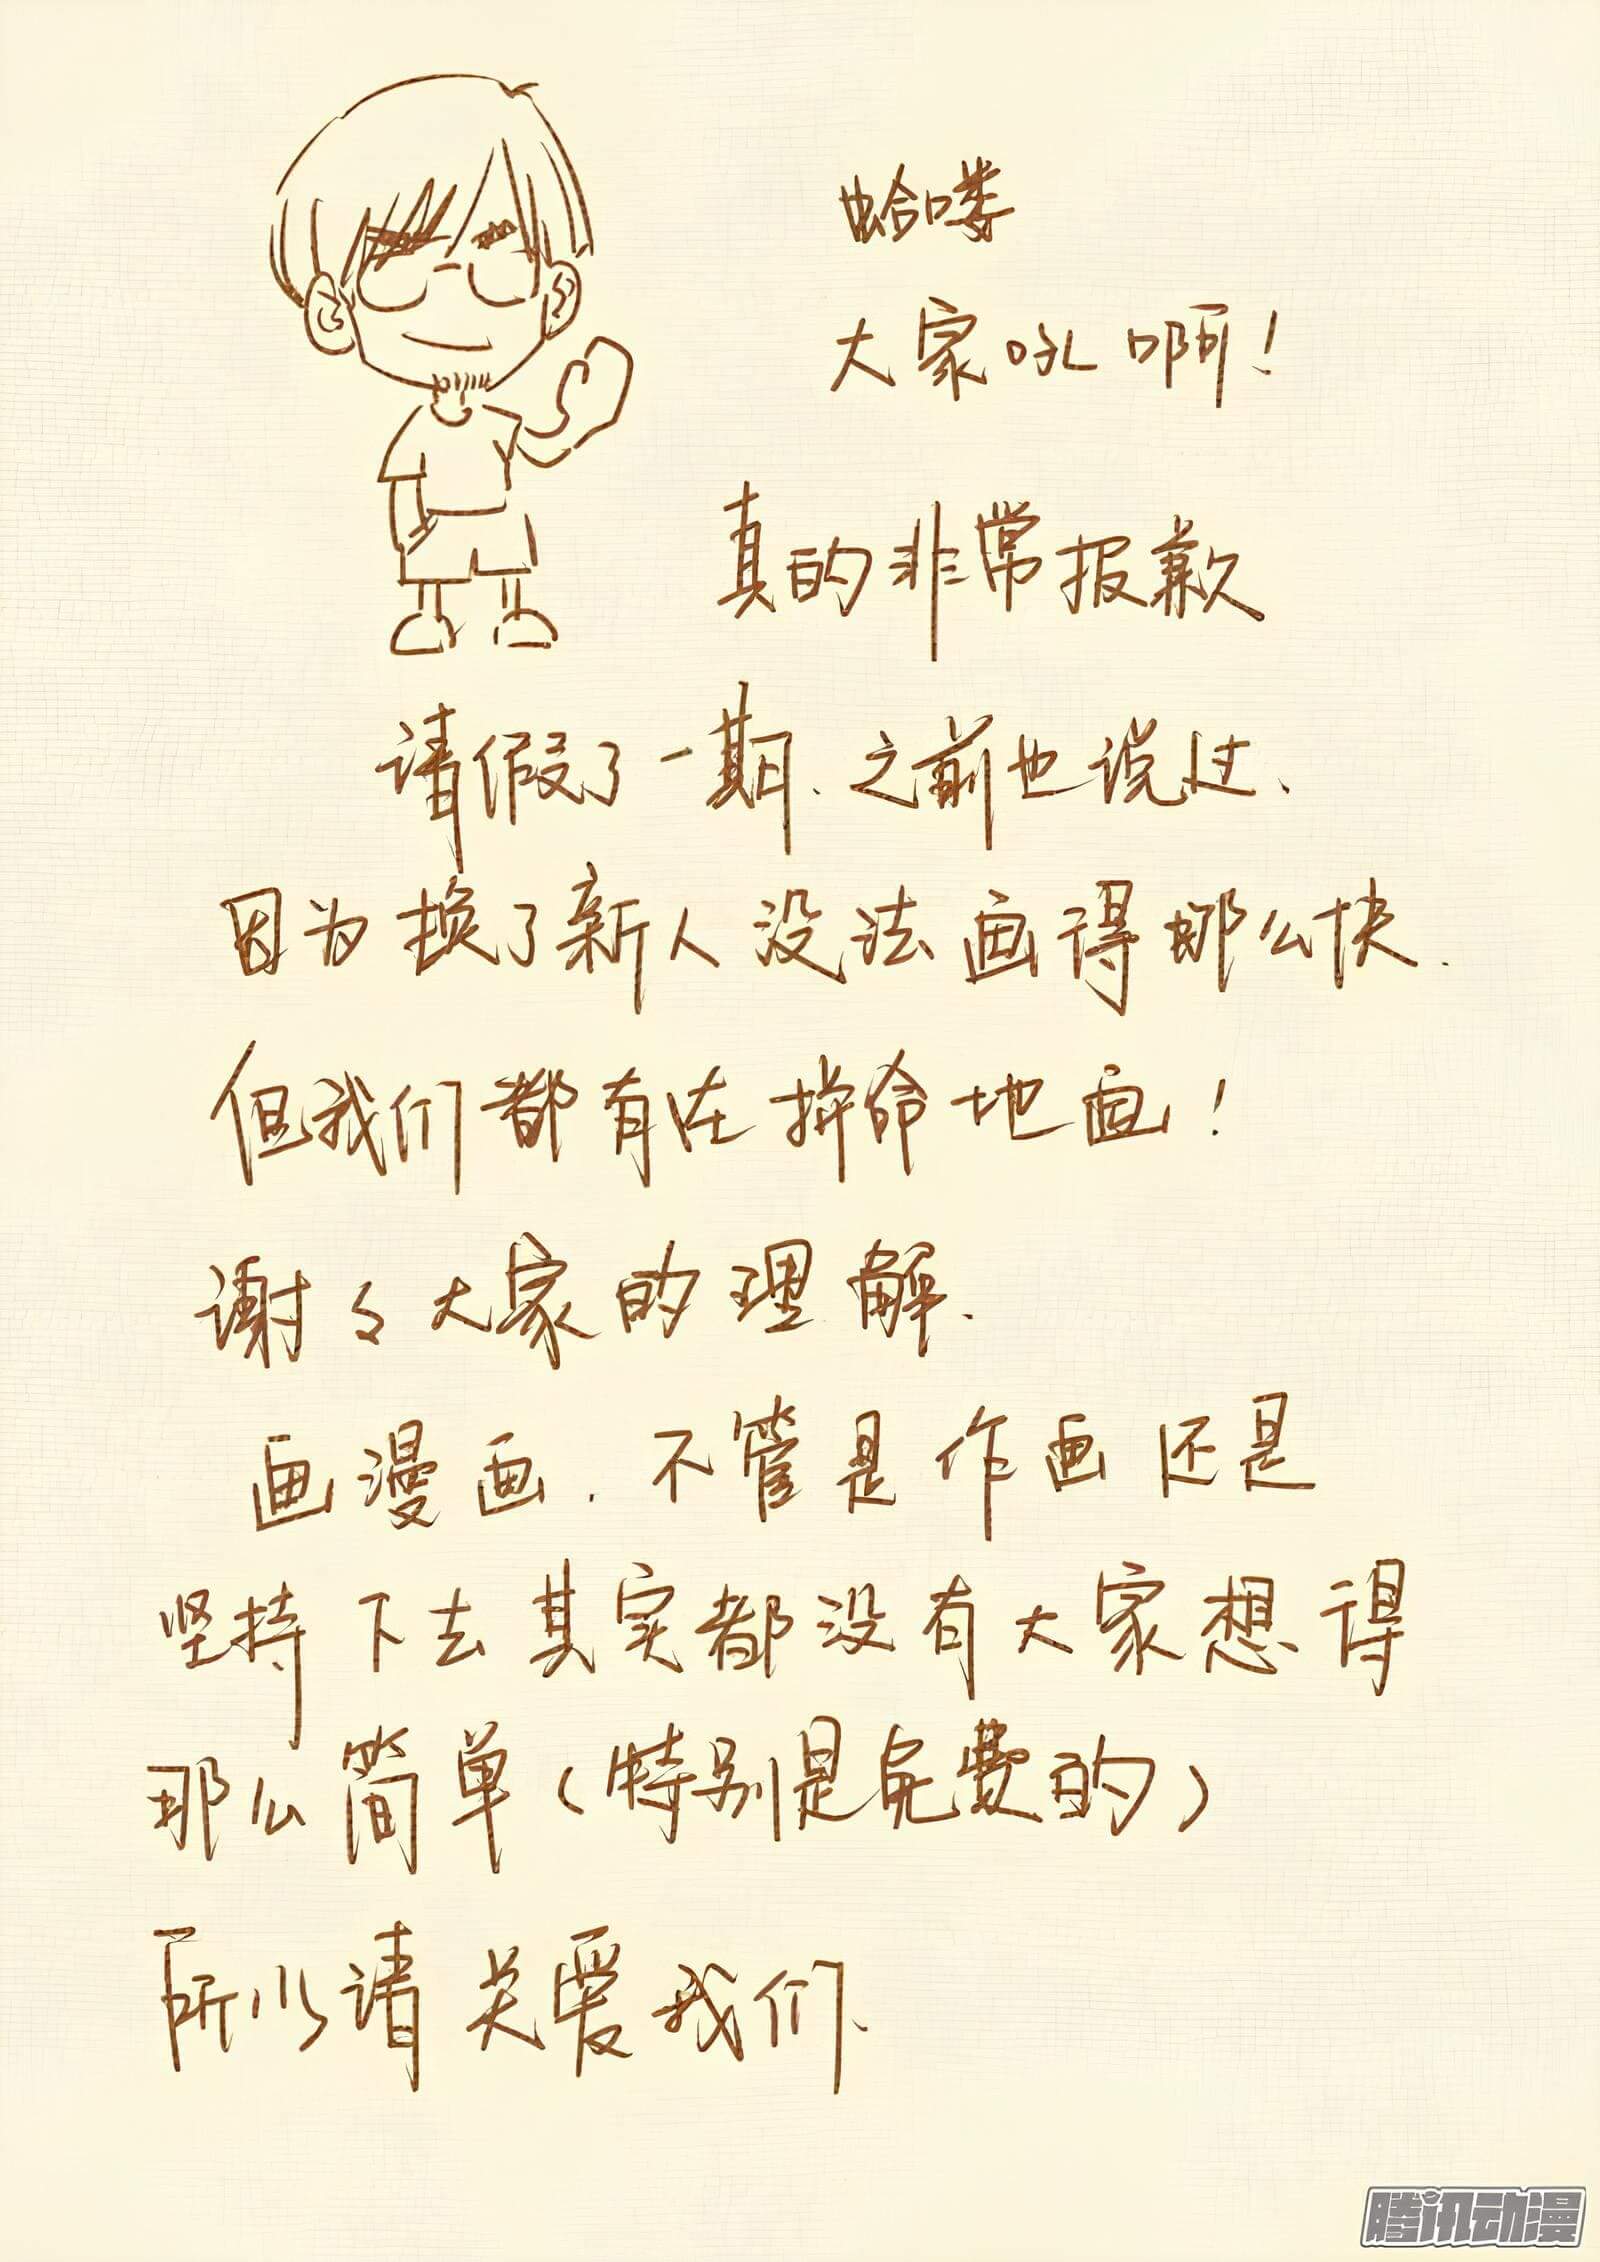 蛤喽
大家吼啊！
真的非常报歉
请假了一期、之前也说过、
因为换了新人没法画得那么快.
但我们都有在拼命地画！
谢々大家的理解.
画漫画、不管是作画还是
坚持下去其实都没有大家想得
那么简单(特别是免费的)
所以请关爱我们、
腾讯动漫